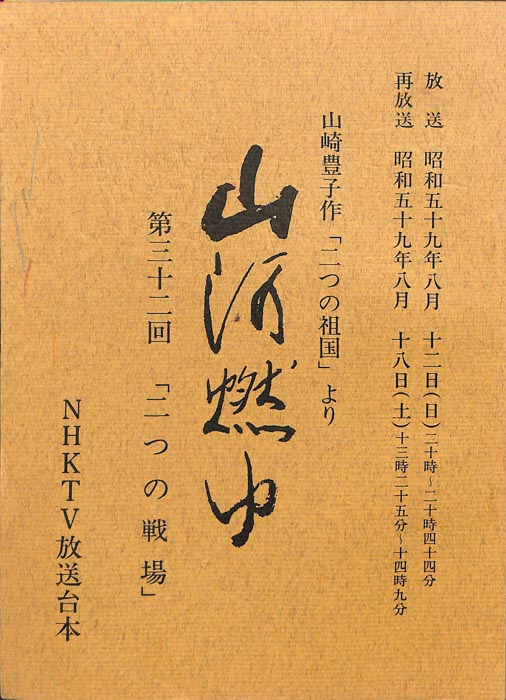 放送 昭和五十九年八月 十二日(日)二十時~二十時四十四分
再放送 昭和五十九年八月 十八日(土)十三時二十五分~十四時九分
山崎豊子作「二つの祖国」より
山河燃ゆ
第三十二回 「二つの戦場」
NHKTV放送台本